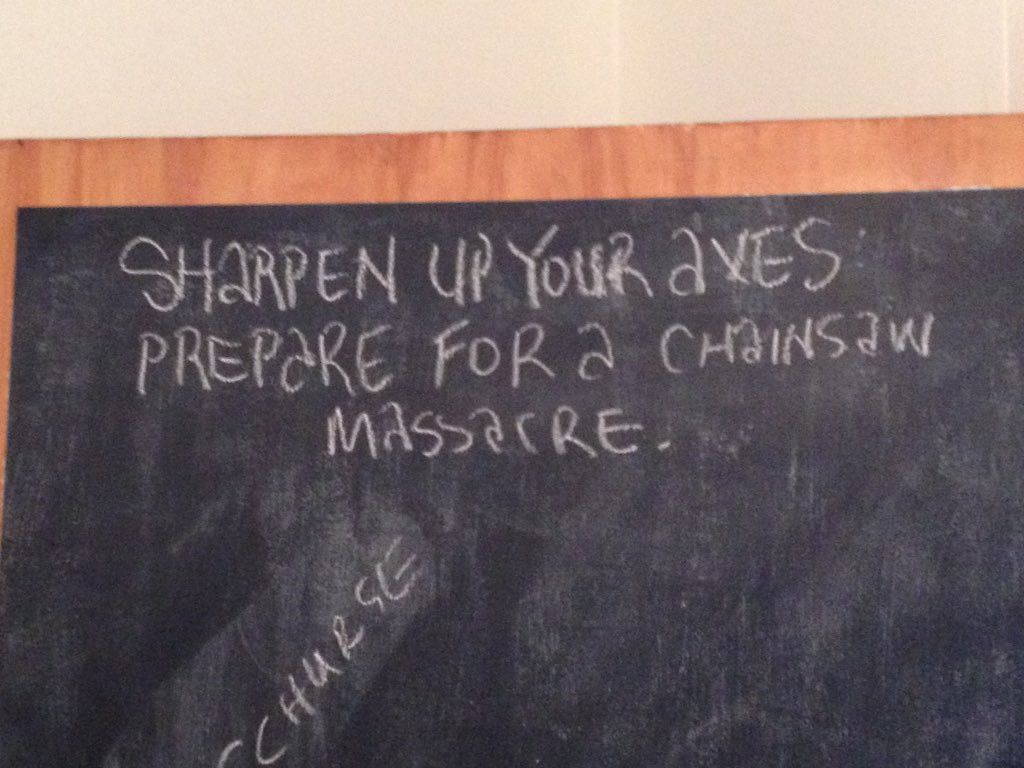 SHaRPEN UP YOUR aXES
PREPaRE FOR a CHaINSaW
MaSSaCRE.